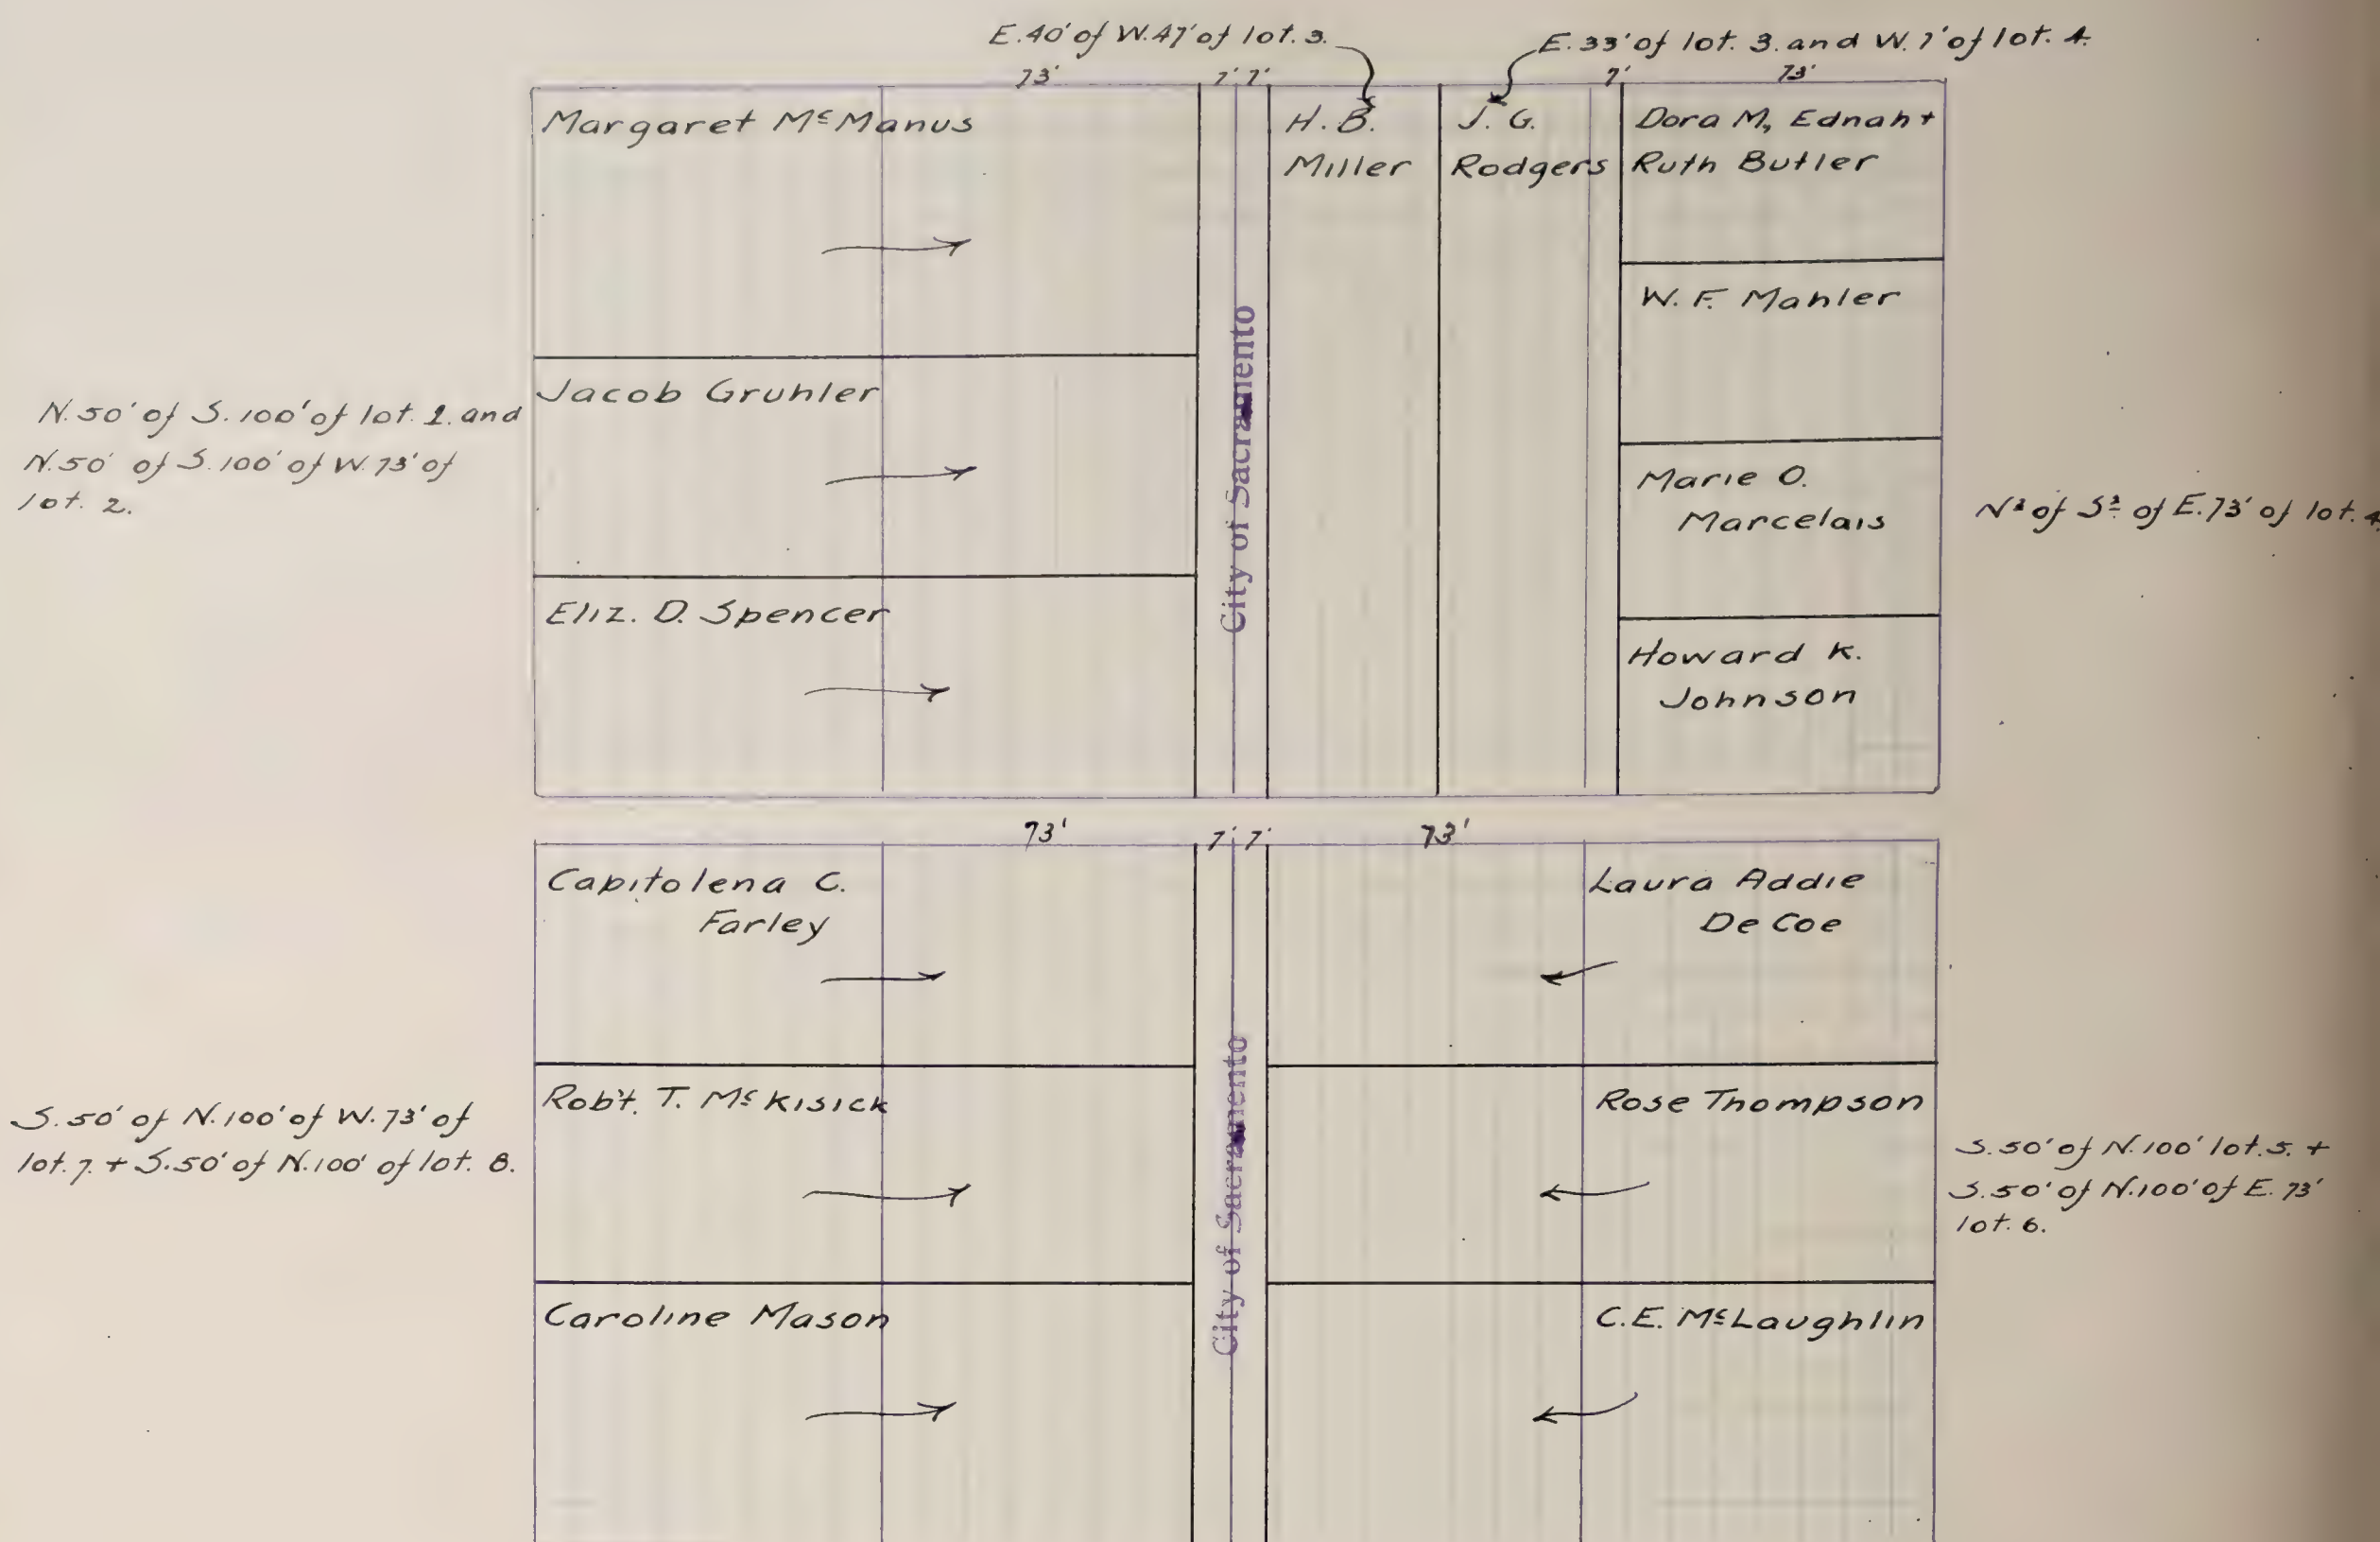 E. 40' of W. 47' of lot. 3.
E. 33' of lot. 3. and W. 7' of lot. 4.
73'
7' 7'
7'
73'
Margaret McManus
H. B.
Miller
J. G.
Rodgers
Dora M, Ednah +
Ruth Butler
W. F. Mahler
Jacob Gruhler
N. 50' of S. 100' of lot. 1. and
N. 50' of S. 100' of W. 73' of
lot. 2.
City of Sacramento
Marie O.
Marcelais
of E. 73' of lot. 4.
Eliz. D. Spencer
Howard K.
Johnson
73'
7' 7'
73'
Capitolena C.
Farley
Laura Addie
De Coe
Rob't. T. McKisick
S. 50' of N. 100' of W. 73' of
lot. 7. + S. 50' of N. 100' of lot. 8.
City of Sacramento
Rose Thompson
S. 50' of N. 100' lot. 5. +
S. 50' of N. 100' of E. 73'
lot. 6.
Caroline Mason
C. E. McLaughlin